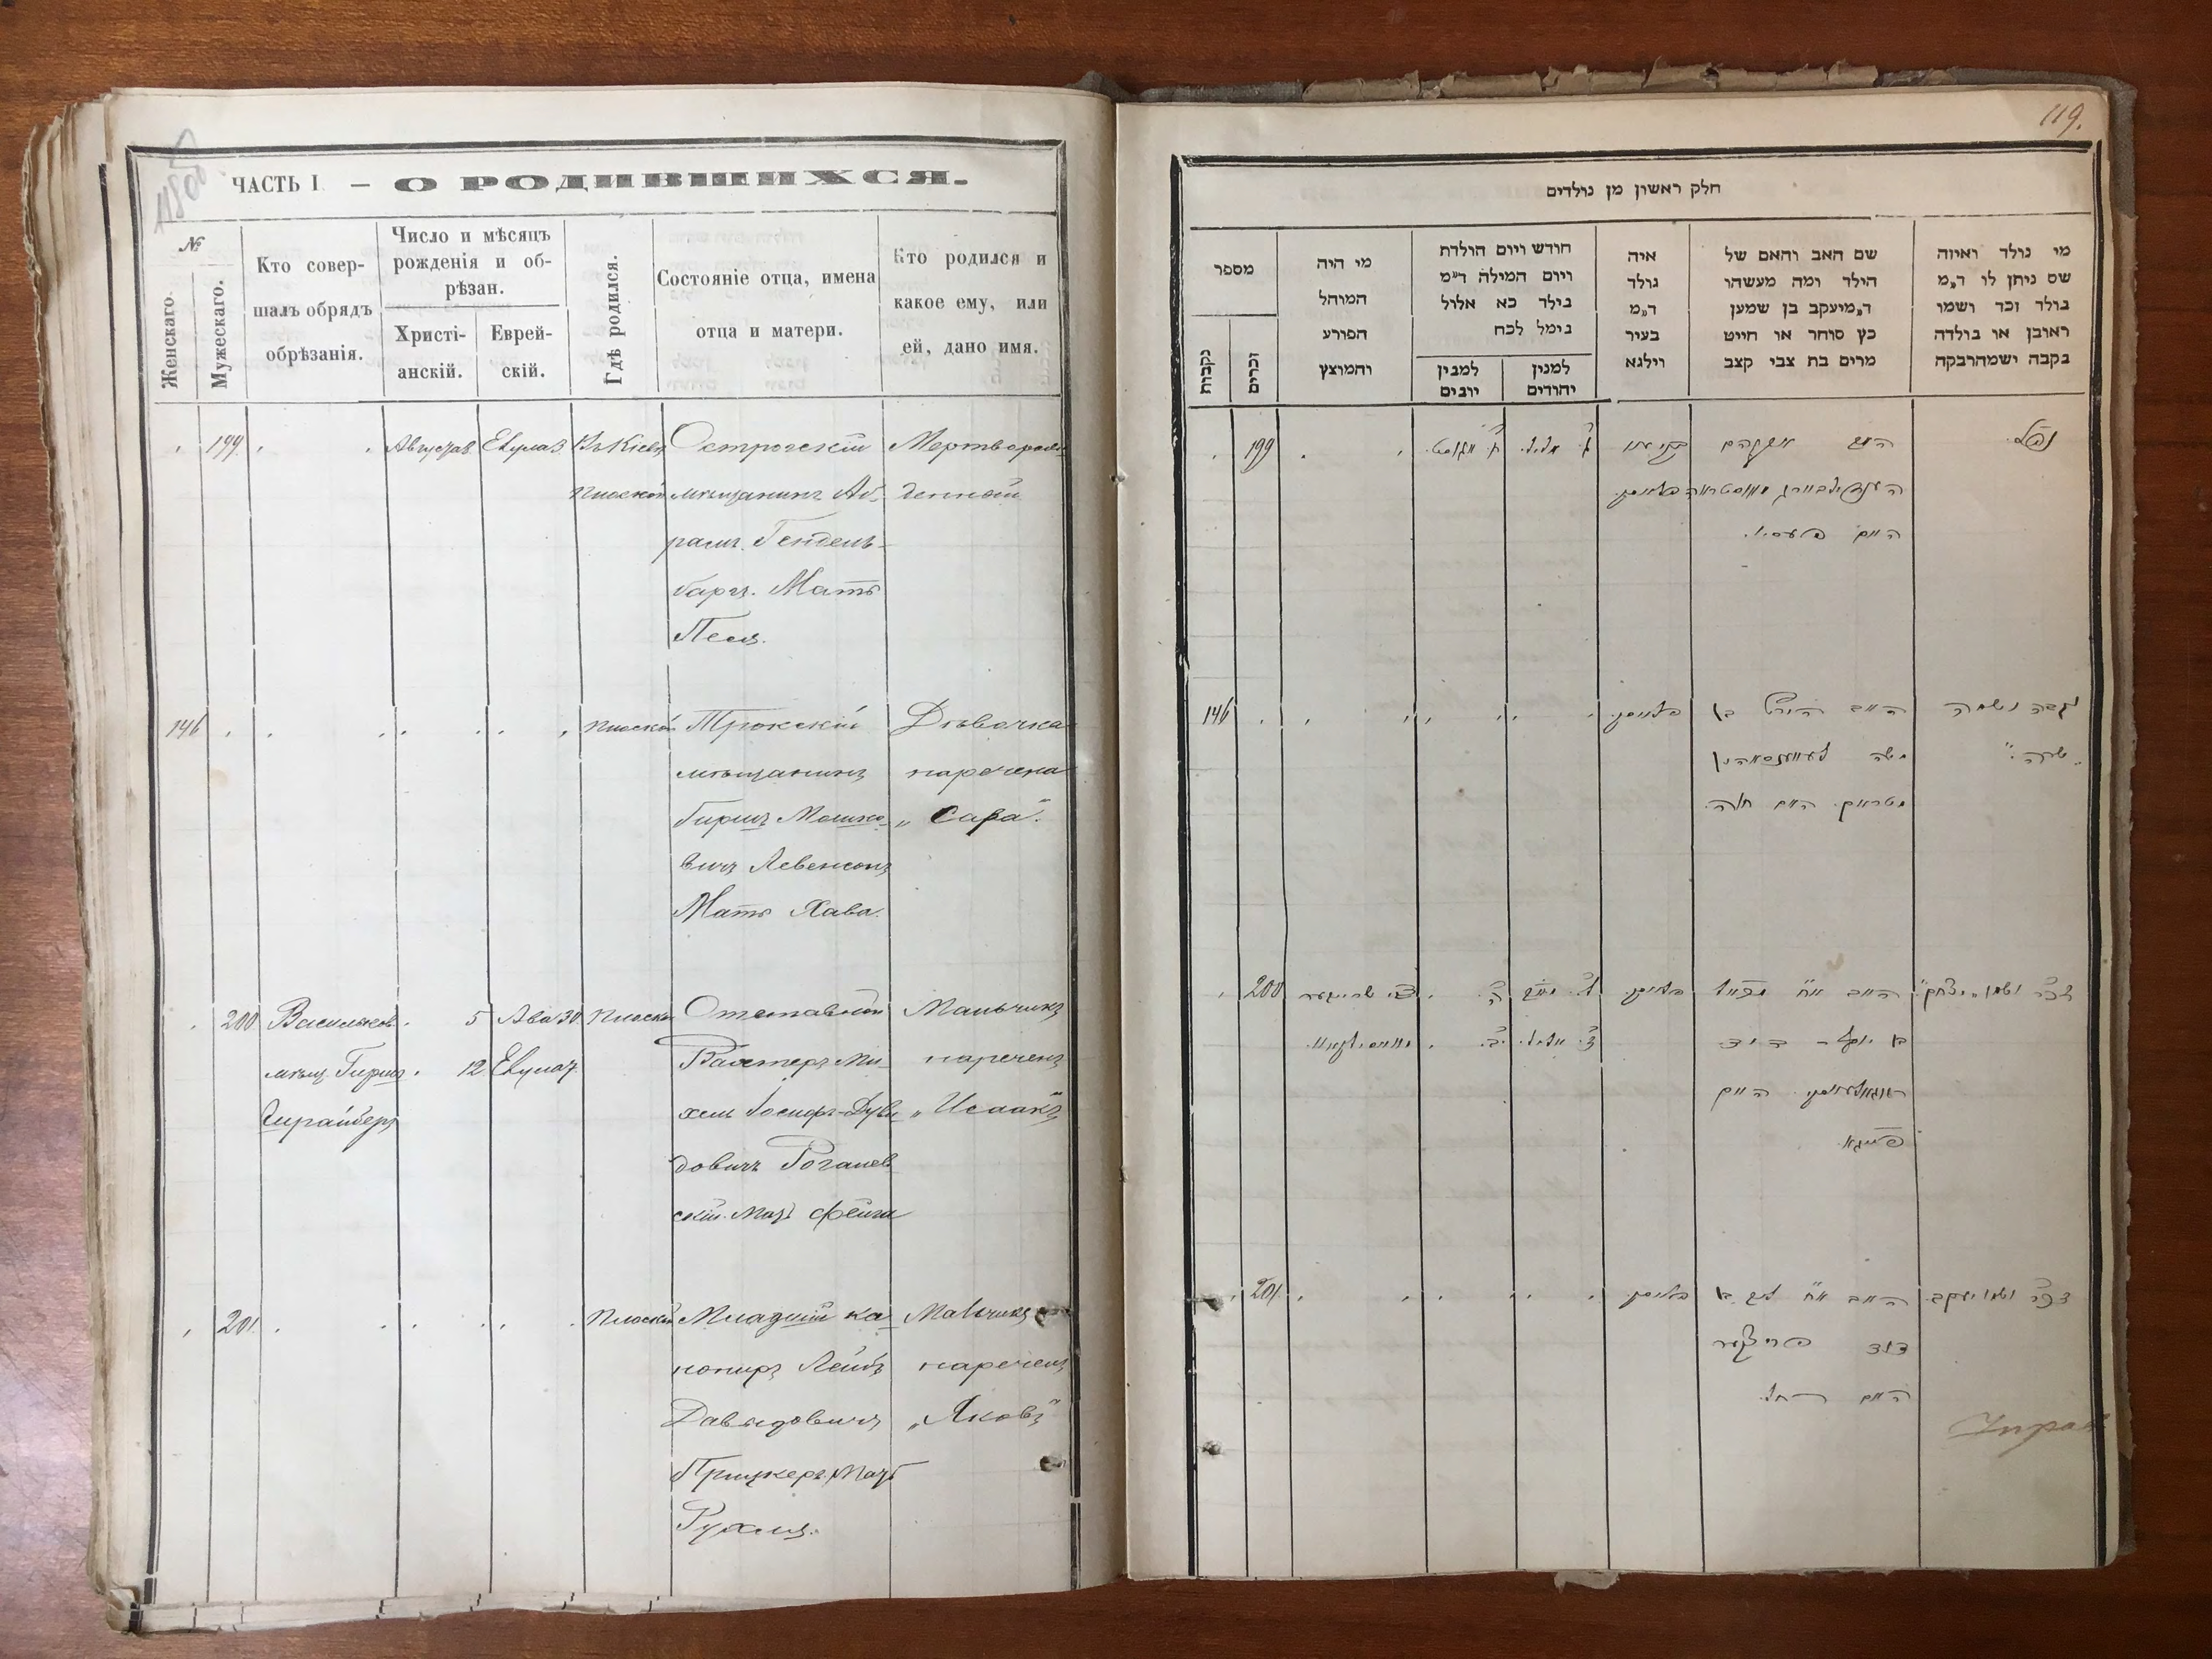 ЧАСТЬ I. — О РОДИВШИХСЯ.
№
Женскаго.
Мужескаго.
Кто совер-
шалъ обрядъ
обрѣзанія.
Число и мѣсяцъ
рожденія и об-
рѣзан.
Христі-
анскій.
Еврей-
скій.
Гдѣ родился.
Состояніе отца, имена
отца и матери.
Кто родился и
какое ему, или
ей, дано имя.
199
Въ Кіевѣ
Плоской
Острогскій
мѣщанинъ Аб-
рамъ Гендель-
баргъ. Мать
Песя.
Мертворож-
денный
146
Плоской
Трокскій
мѣщанинъ
Гиршъ Мошко-
вичъ Левенсонъ
Мать Хава.
Дѣвочка
наречена
„Сара"
200
Васильков.
мѣщ. Гиршъ
Шрайберъ
5
12
Ава 30
Елула 7
Плоской
Отставной
Вахтеръ Ми-
хель Іосифъ-Дуви-
довичъ Рогачев-
скій. Мать Фейга
Мальчикъ
нареченъ
„Исаакъ"
201.
Плоской
Младшій ка-
нониръ Лейбъ
Давыдовичъ
Прицкеръ Мать
Рухля.
Мальчикъ
нареченъ
„Яковъ"
119.
חלק ראשון מן נולדים
מספר
נקבות
זכרים
מי היה
המוהל
הפורע
והמוצץ
חודש ויום הולדת
ויום המילה ד״מ
בילד כא אלול
נימל לכח
למנין
יונים
למנין
יהודים
איה
נולד
ד״מ
בעיר
ווילנא
שם האב והאם של
הילד ומה מעשהו
ד״מ יעקב בן שמען
כץ סוחר או חייט
מרים בת צבי קצב
מי נולד ואיזה
שם ניתן לו ד״מ
נולד זכר ושמו
ראובן או נולדה
נקבה ושמה רבקה
199
נפל
האב אברהם
האם פעסי.
146
נקבה ושמה
„שרה"
האב הירש בן
משה לעווענסאהן
האם חוה.
200
זכר ושמו „יצחק"
בן יוסף-דוד
האם
פייגא.
צבי שרייבער
201.
זכר ושמו יעקב.
דוד פריצקער
האם רחל.